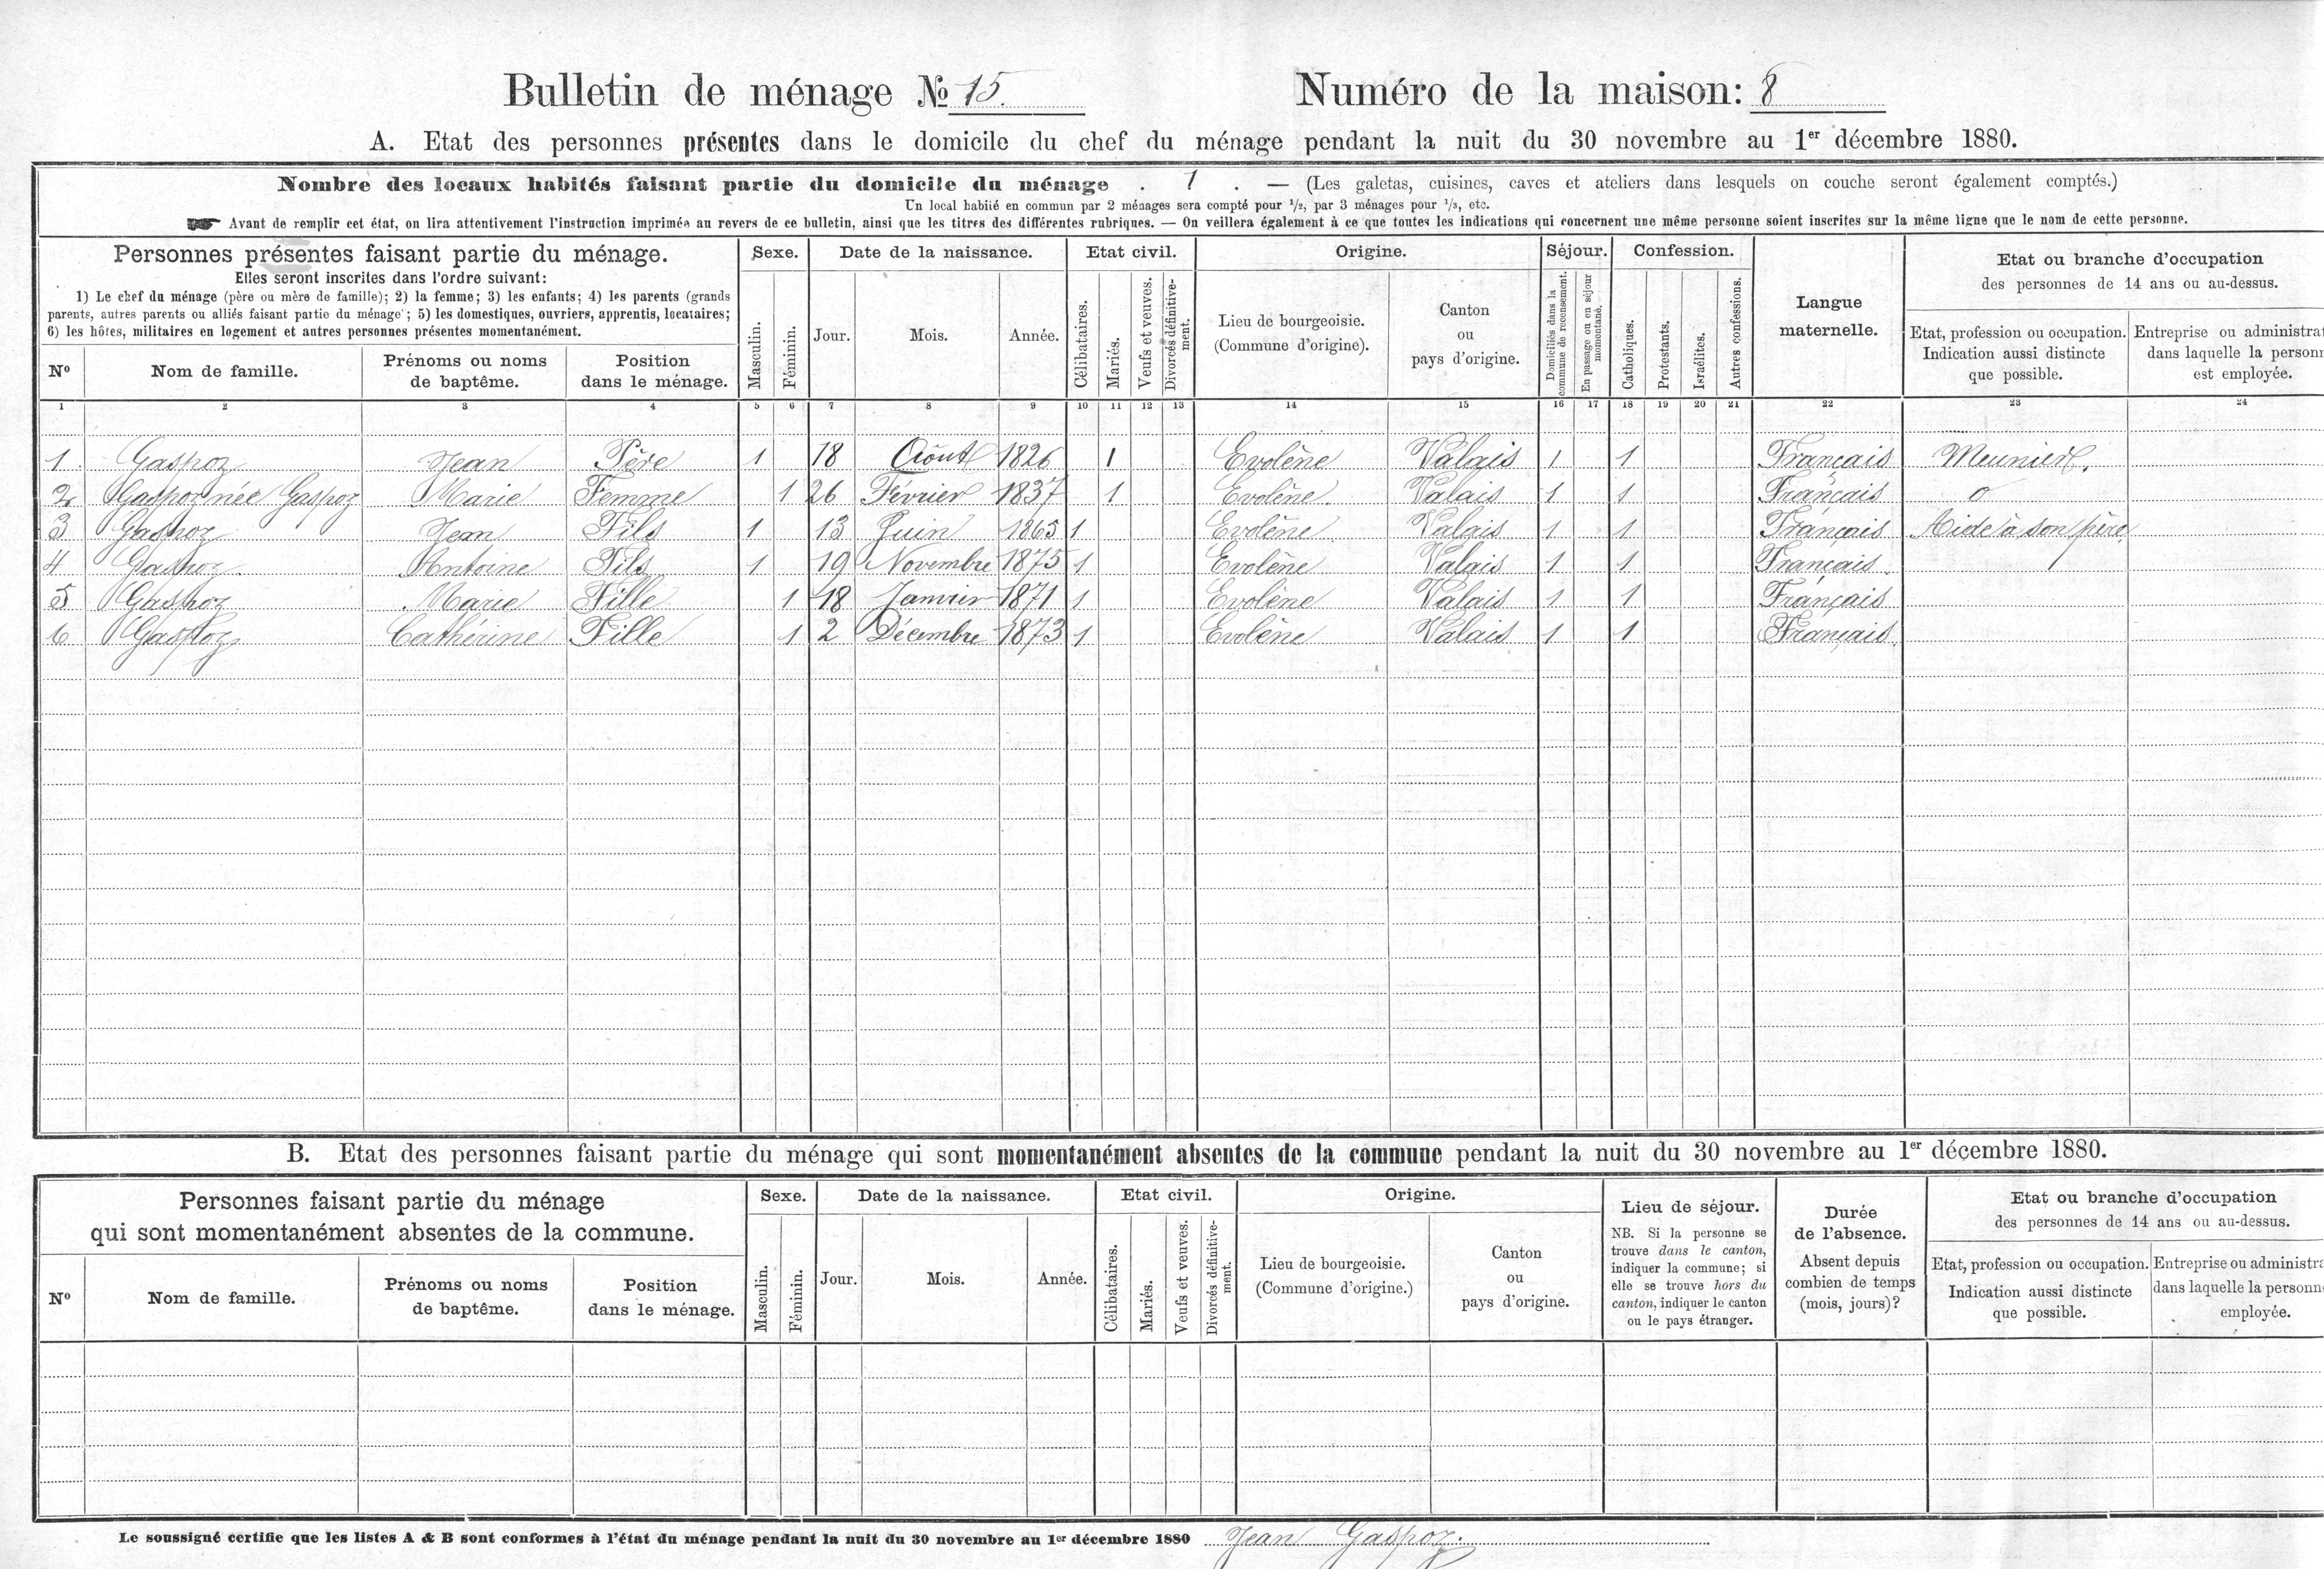 Bulletin de ménage № 15. Numéro de la maison: 8
A. Etat des personnes présentes dans le domicile du chef du ménage pendant la nuit du 30 novembre au 1er décembre 1880.
Nombre des locaux habités faisant partie du domicile du ménage . 1 . — (Les galetas, cuisines, caves et ateliers dans lesquels on couche seront également comptés.)
Un local habité en commun par 2 ménages sera compté pour 1/2, par 3 ménages pour 1/3, etc.
☛ Avant de remplir cet état, on lira attentivement l'instruction imprimée au revers de ce bulletin, ainsi que les titres des différentes rubriques. — On veillera également à ce que toutes les indications qui concernent une même personne soient inscrites sur la même ligne que le nom de cette personne.
Personnes présentes faisant partie du ménage.
Elles seront inscrites dans l'ordre suivant:
1) Le chef du ménage (père ou mère de famille); 2) la femme; 3) les enfants; 4) les parents (grands
parents, autres parents ou alliés faisant partie du ménage; 5) les domestiques, ouvriers, apprentis, locataires;
6) les hôtes, militaires en logement et autres personnes présentes momentanément.
Nº
Nom de famille.
Prénoms ou noms
de baptême.
Position
dans le ménage.
Sexe.
Masculin.
Féminin.
Date de la naissance.
Jour.
Mois.
Année.
Etat civil.
Célibataires.
Mariés.
Veufs et veuves.
Divorcés définitive-
ment.
Origine.
Lieu de bourgeoisie.
(Commune d'origine).
Canton
ou
pays d'origine.
Séjour.
Domiciliés dans la
commune de recensement.
En passage ou en séjour
momentané.
Confession.
Catholiques.
Protestants.
Israélites.
Autres confessions.
Langue
maternelle.
Etat ou branche d'occupation
des personnes de 14 ans ou au-dessus.
Etat, profession ou occupation.
Indication aussi distincte
que possible.
Entreprise ou administra
dans laquelle la person
est employée.
1 2 3 4 5 6 7 8 9 10 11 12 13 14 15 16 17 18 19 20 21 22 23 24
1. Gaspoz Jean Père 1 18 Août 1826 1 Evolène Valais 1 1 Français Meunier.
2 Gaspoz née Gaspoz Marie Femme 1 26 Février 1837 1 Evolène Valais 1 1 Français o
3 Gaspoz Jean Fils 1 13 Juin 1865 1 Evolène Valais 1 1 Français Aide à son père
4 Gaspoz Antoine Fils 1 19 Novembre 1875 1 Evolène Valais 1 1 Français
5 Gaspoz Marie Fille 1 18 Janvier 1871 1 Evolène Valais 1 1 Français
6 Gaspoz Cathérine Fille 1 2 Décembre 1873 1 Evolène Valais 1 1 Français
B. Etat des personnes faisant partie du ménage qui sont momentanément absentes de la commune pendant la nuit du 30 novembre au 1er décembre 1880.
Personnes faisant partie du ménage
qui sont momentanément absentes de la commune.
Nº
Nom de famille.
Prénoms ou noms
de baptême.
Position
dans le ménage.
Sexe.
Masculin.
Féminin.
Date de la naissance.
Jour.
Mois.
Année.
Etat civil.
Célibataires.
Mariés.
Veufs et veuves.
Divorcés définitive-
ment.
Origine.
Lieu de bourgeoisie.
(Commune d'origine.)
Canton
ou
pays d'origine.
Lieu de séjour.
NB. Si la personne se
trouve dans le canton,
indiquer la commune; si
elle se trouve hors du
canton, indiquer le canton
ou le pays étranger.
Durée
de l'absence.
Absent depuis
combien de temps
(mois, jours)?
Etat ou branche d'occupation
des personnes de 14 ans ou au-dessus.
Etat, profession ou occupation.
Indication aussi distincte
que possible.
Entreprise ou administra
dans laquelle la personn
employée.
Le soussigné certifie que les listes A & B sont conformes à l'état du ménage pendant la nuit du 30 novembre au 1er décembre 1880 Jean Gaspoz.